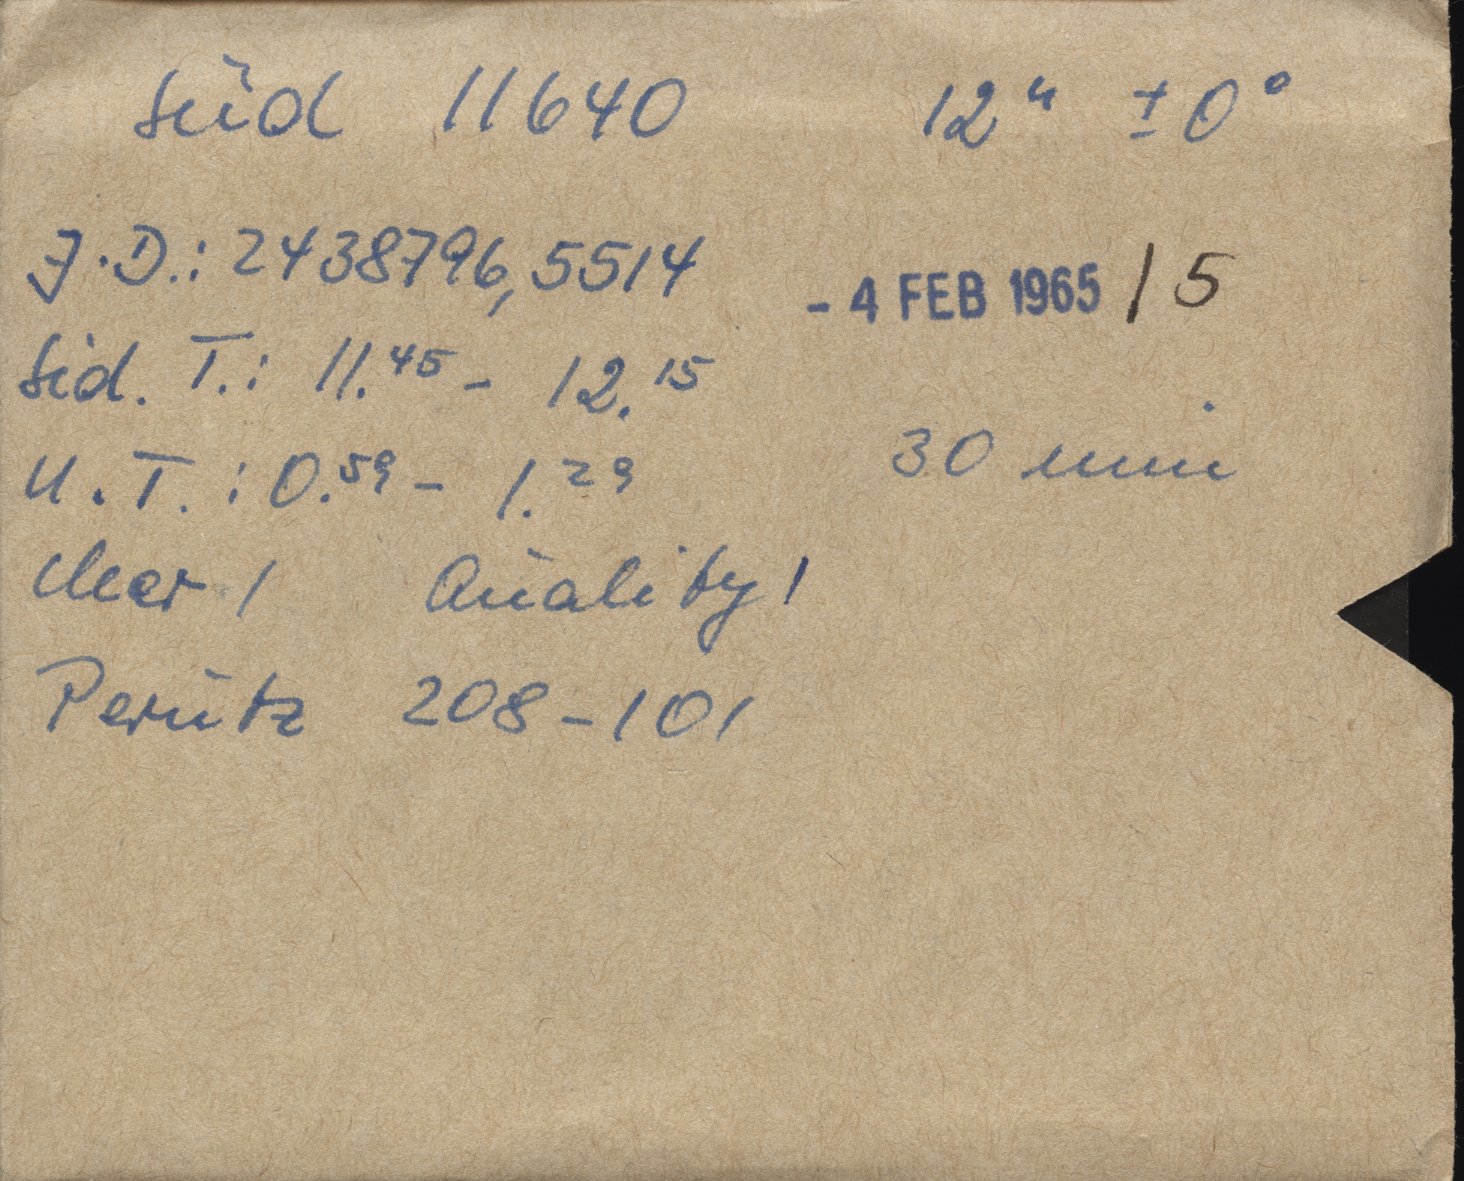 Süd 11640 12ʰ ±0°
J.D.: 2438796,5514 - 4 FEB 1965 / 5
Sid. T.: 11.⁴⁵ - 12.¹⁵
U.T.: 0.⁵⁹ - 1.²⁹ 30 min
clear 1 Quality 1
Perutz 208-101